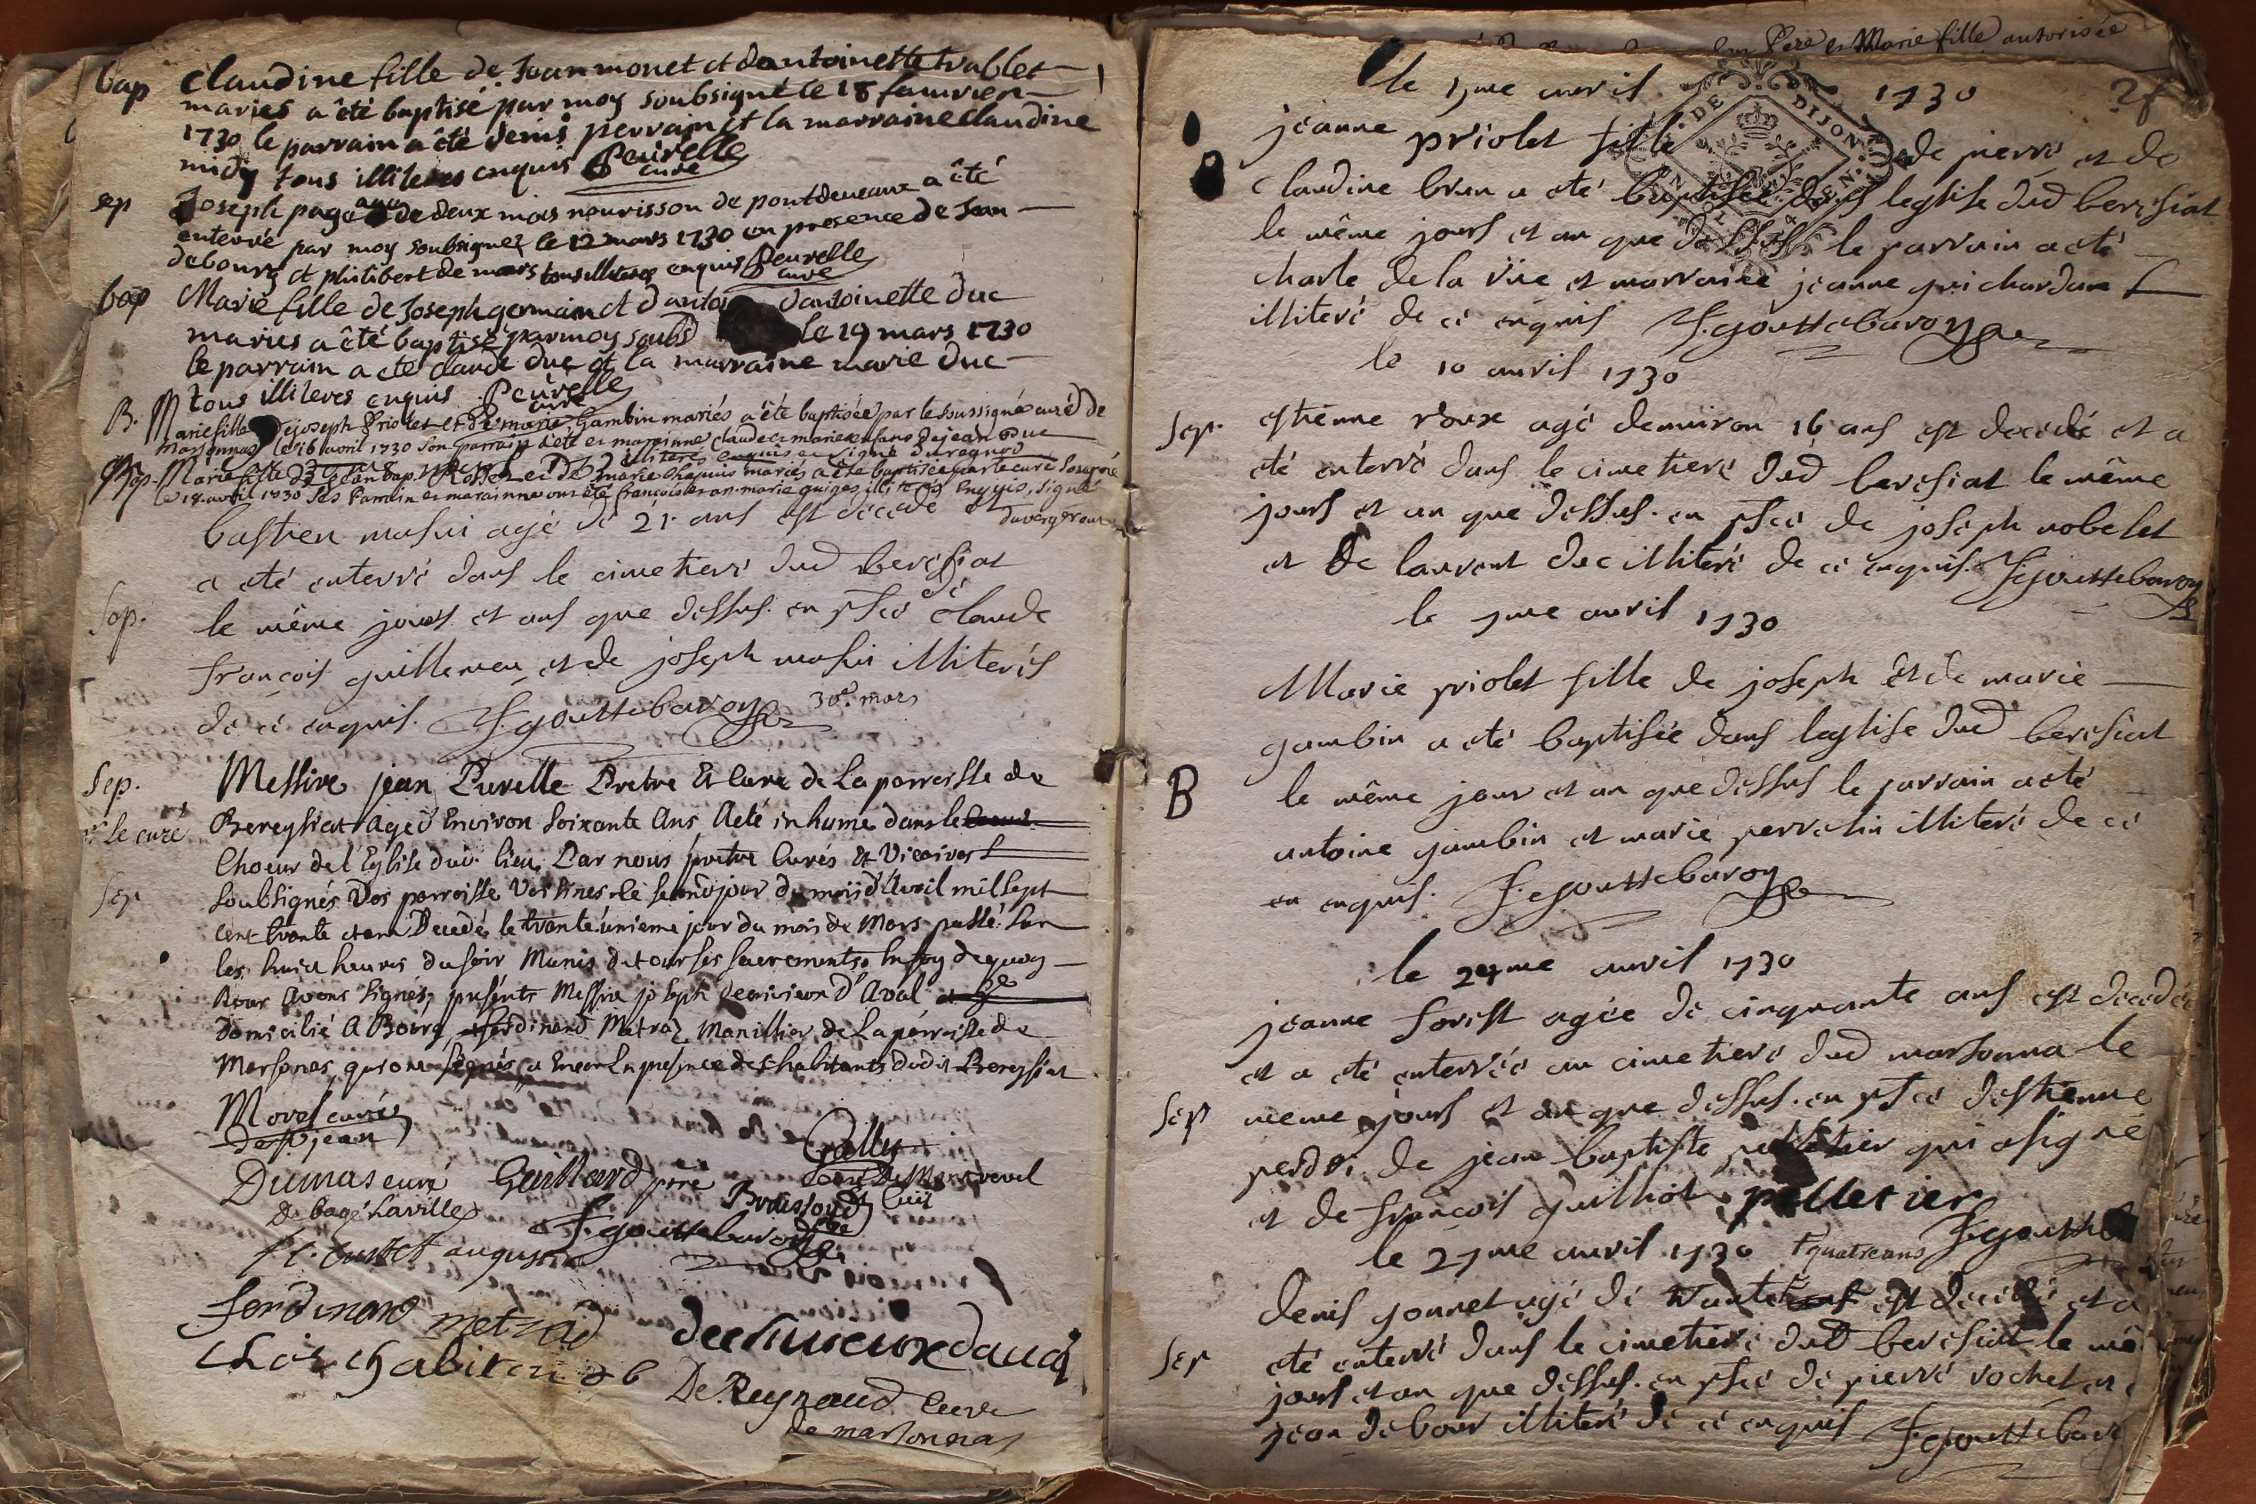 bap claudine fille de Jean monet et dantoinette trablet
maries a êté baptisé par moy soubsigné le 18 fauvrier
1730 le parrain a êté denis perrain et la marraine claudine
midy tous illiteres enquis Peuvelle
curé
sep Joseph page agé de deux mois nourisson de pontdeveaux a êté
enterré par moy soubsignez le 12 mars 1730 en presence de Jean
debourg et philibert de mars tous illiteres enquis Peuvelle
curé
bap Marie fille de Joseph germain et dantoi dantoinette duc
maries a êté baptisé par moy soubs le 19 mars 1730
le parrain a eté claude duc et la marraine marie duc
tous illiteres enquis Peuvelle
curé
B. Marie fille de joseph Priolet et de marie Gambin mariés a êté baptisée par le soussigné curé de
marsonnas le 16 avril 1730 son parrain a été et marainne claude et marie enfans de jean Duc
illiteres enquis
Bap. Marie fille de jean bap. et De marie Chapuis mariés a été baptisée par le curé
le 18. avril 1730 Ses Parrain et marainne ont été francois et marie illiteres Enquis, signé
bastien masui agé de 21 ans est décedé et
a eté enterré dans le cimetiere dud beresiat
Sep. le même jours et ans que dessus. en psce de claude
françois guillemau et de joseph masui illiterés
de ce enquis. F. gouttebaron 30e. mars
Sep. Messire jean Puvelle Pretre Et Curé de La parroisse de
Mr le curé Bereysiat Aged Environ Soixante Ans A eté inhumé dans le
Choeur de l'Eglise dud. lieu, Par nous pretre Curés Et Vicaires
Sep Soubsignés Des parroisse Voisines le second jour du mois d'Avril mil sept
cent trante etant Decedé le trante unieme jour du mois de Mars passé Sur
les huict heures du soir Munis de tous ses sacrements. En foy de quoy
Nous Avons signés, presents Messire joseph d'Aval
Domicilié A Bourg ferdinand Metraz Manillier, de La parroisse de
Marsonas, qui ont signés, a Encor En presence des habitants dudit Bereysiat
Morel curé
de St jean
Dumas curé Guillard pre
Gally
Curé De Montrevel
De bagé Laville Broissond
F. gouttebaron
augustin
ferdinand metraz
De Reynaud Curé
de marsonnas
Pere et Marie fille autorisée
le 9me avril 1730
DE DIJON
jeanne priolet fille de pierre et de
claudine brun a eté baptisée dans leglise dud beresiat
le même jours et an que dessus le parrain a eté
charle de la rüe et marraine jeanne guichardan
illiteré de ce enquis F. gouttebaron
le 10 avril 1730
Sep. estienne roux agé denuiron 16 ans est decedé et a
eté enterré dans le cimetiere dud beresiat le même
jours et an que dessus. en psce de joseph nobelet
et de laurent duc illiteré de ce enquis. F. gouttebaron
le 9me avril 1730
Marie priolet fille de joseph et de marie
gambin a eté baptisée dans leglise dud beresiat
B le même jour et an que dessus le parrain a eté
antoine gambin et marie perretin illiteré de ce
en enquis. F. gouttebaron
le 24me avril 1730
jeanne forest agée de cinquante ans est decedée
et a eté enterrée au cimetiere dud marsonna le
Sep meme jours et an que dessus. en psce destienne
perdri de jean baptiste pelletier qui a signé
et de françois guilhot. pelletier F. goutteb
le 27me avril 1730 quatre ans
denis gonnet agé de trante ans est decedé et a
Sep eté enterré dans le cimetiere dud beresiat le mê
jours et an que dessus. en psce de pierre rochet et
jean debour illiteré de ce enquis F. goutteba